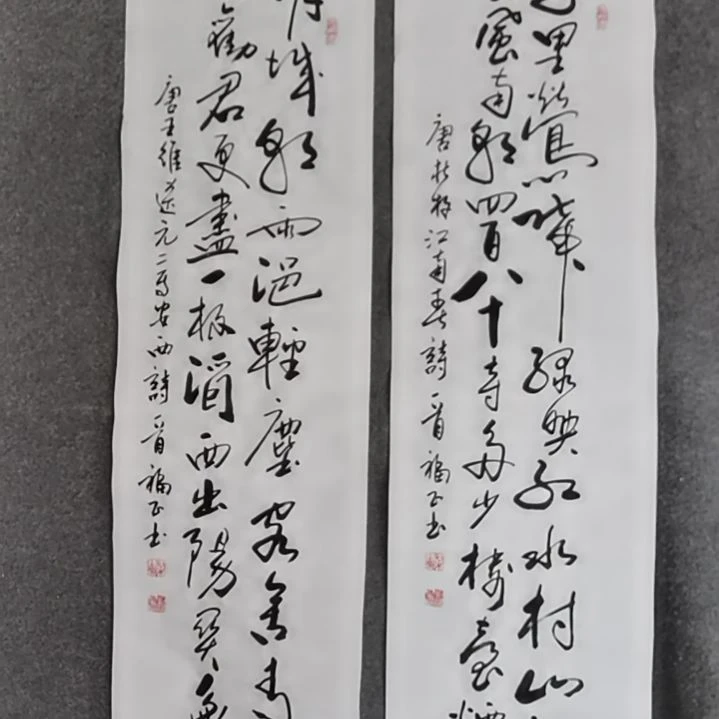 里鶯啼綠映紅水村山
風南朝四百八十寺多少樓臺煙
唐杜牧江南春詩一首福正書
城朝雨浥輕塵客舍青
勸君更盡一杯酒西出陽關無
唐王維送元二使安西詩一首福正書